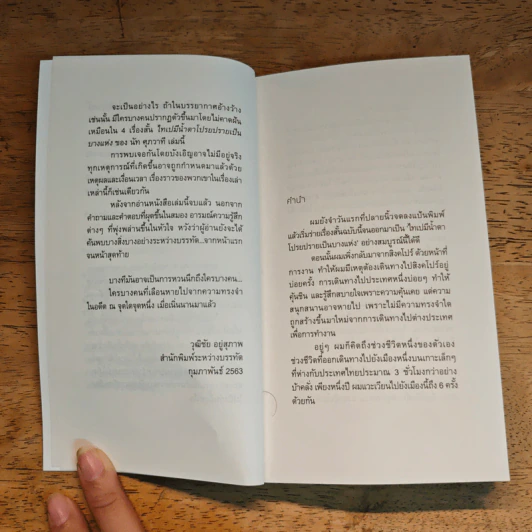 จะเป็นอย่างไร ถ้าในบรรยากาศอ้างว้าง
เช่นนั้น มีใครบางคนปรากฏตัวขึ้นมาโดยไม่คาดฝัน
เหมือนใน 4 เรื่องสั้น ไทเปมีน้ำตาโปรยปรายเป็น
บางแห่ง ของ นัท ศุภวาที เล่มนี้
การพบเจอกันโดยบังเอิญอาจไม่มีอยู่จริง
ทุกเหตุการณ์ที่เกิดขึ้นอาจถูกกำหนดมาแล้วด้วย
เหตุผลและเงื่อนเวลา เรื่องราวของพวกเขาในเรื่องเล่า
เหล่านี้ก็เช่นเดียวกัน
หลังจากอ่านหนังสือเล่มนี้จบแล้ว นอกจาก
คำถามและคำตอบที่ผุดขึ้นในสมอง อารมณ์ความรู้สึก
ต่างๆ ที่พุ่งพล่านขึ้นในหัวใจ หวังว่าผู้อ่านยังจะได้
ค้นพบบางสิ่งบางอย่างระหว่างบรรทัด...จากหน้าแรก
จนหน้าสุดท้าย
บางทีมันอาจเป็นการหวนนึกถึงใครบางคน...
ใครบางคนที่เลือนหายไปจากความทรงจำ
ในอดีต ณ จุดใดจุดหนึ่ง เมื่อเนิ่นนานมาแล้ว
วุฒิชัย อยู่สุภาพ
สำนักพิมพ์ระหว่างบรรทัด
กุมภาพันธ์ 2563
คำนำ
ผมยังจำวันแรกที่ปลายนิ้วจดลงแป้นพิมพ์
แล้วเริ่มร่ายเรื่องสั้นฉบับนี้จนออกมาเป็น 'ไทเปมีน้ำตา
โปรยปรายเป็นบางแห่ง' อย่างสมบูรณ์นี้ได้ดี
ตอนนั้นผมเพิ่งกลับมาจากสิงคโปร์ ด้วยหน้าที่
การงาน ทำให้ผมมีเหตุต้องเดินทางไปสิงคโปร์อยู่
บ่อยครั้ง การเดินทางไปประเทศหนึ่งบ่อยๆ ทำให้
คุ้นชิน และรู้สึกสบายใจเพราะความคุ้นเคย แต่ความ
สนุกสนานอาจหายไป เพราะไม่มีความทรงจำใด
ถูกสร้างขึ้นมาใหม่จากการเดินทางไปต่างประเทศ
เพื่อการทำงาน
อยู่ๆ ผมก็คิดถึงช่วงชีวิตหนึ่งของตัวเอง
ช่วงชีวิตที่ออกเดินทางไปยังเมืองหนึ่งบนเกาะเล็กๆ
ที่ห่างกับประเทศไทยประมาณ 3 ชั่วโมงกว่าอย่าง
บ้าคลั่ง เพียงหนึ่งปี ผมแวะเวียนไปยังเมืองนี้ถึง 6 ครั้ง
ด้วยกัน